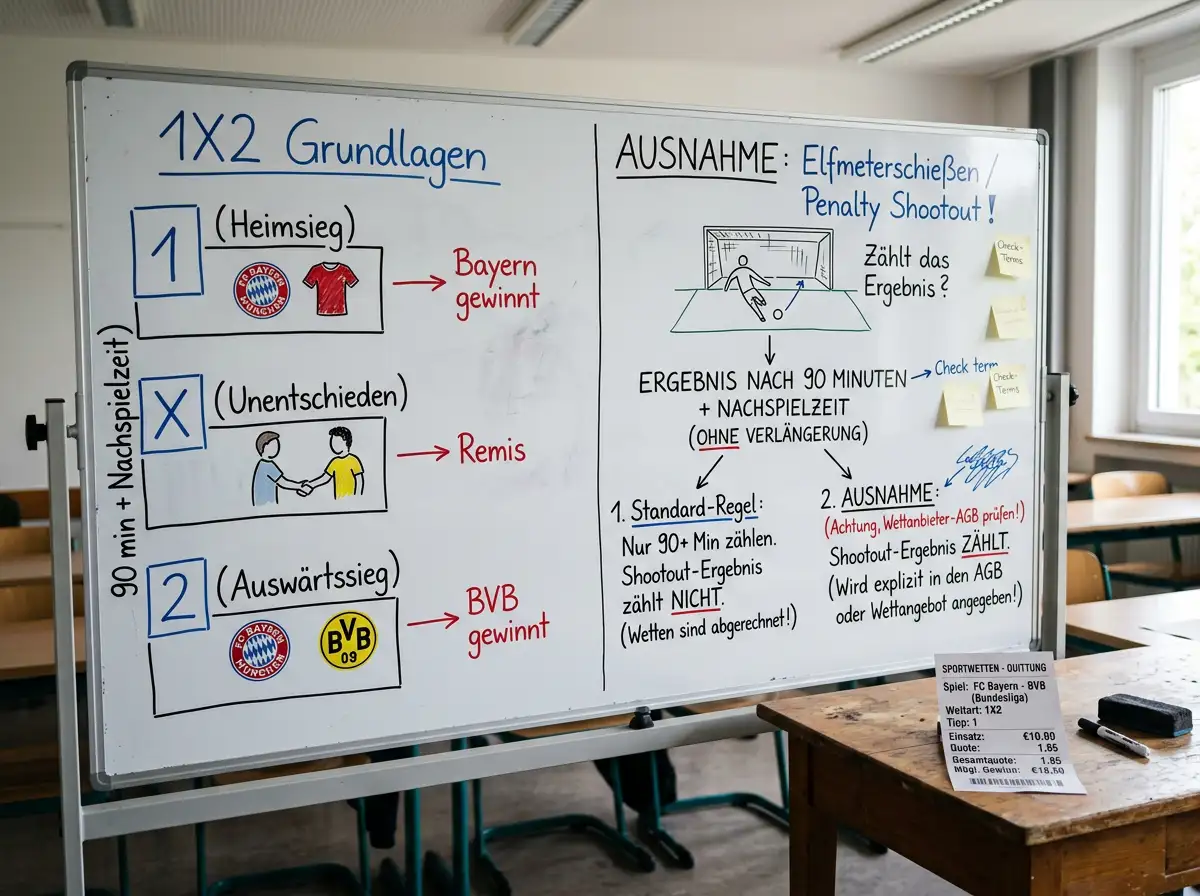 1X2 Grundlagen
1 (Heimsieg)
FC BAYERN
MÜNCHEN
Bayern
gewinnt
X (Unentschieden)
Remis
2 (Auswärtssieg)
FC BAYERN
MÜNCHEN
BVB
09
BVB
gewinnt
90 min + Nachspielzeit)
AUSNAHME: Elfmeterschießen /
Penalty Shootout!
Zählt das
Ergebnis?
Check-
Terms
ERGEBNIS NACH 90 MINUTEN
+ NACHSPIELZEIT
(OHNE VERLÄNGERUNG)
Check term
Check-
Terms
1. Standard-Regel:
Nur 90+ Min zählen.
Shootout-Ergebnis
zählt NICHT.
(Wetten sind abgerechnet!)
2. AUSNAHME:
(Achtung, Wettanbieter-AGB prüfen!)
Shootout-Ergebnis ZÄHLT.
(Wird explizit in den AGB
oder Wettangebot angegeben!)
SPORTWETTEN - QUITTUNG
Spiel: FC Bayern - BVB
(Bundesliga)
Wettart: 1X2
Tipp: 1
Einsatz: €10.00
Quote: 1.85
Gesamtquote: 1.85
Mögl. Gewinn: €18.50